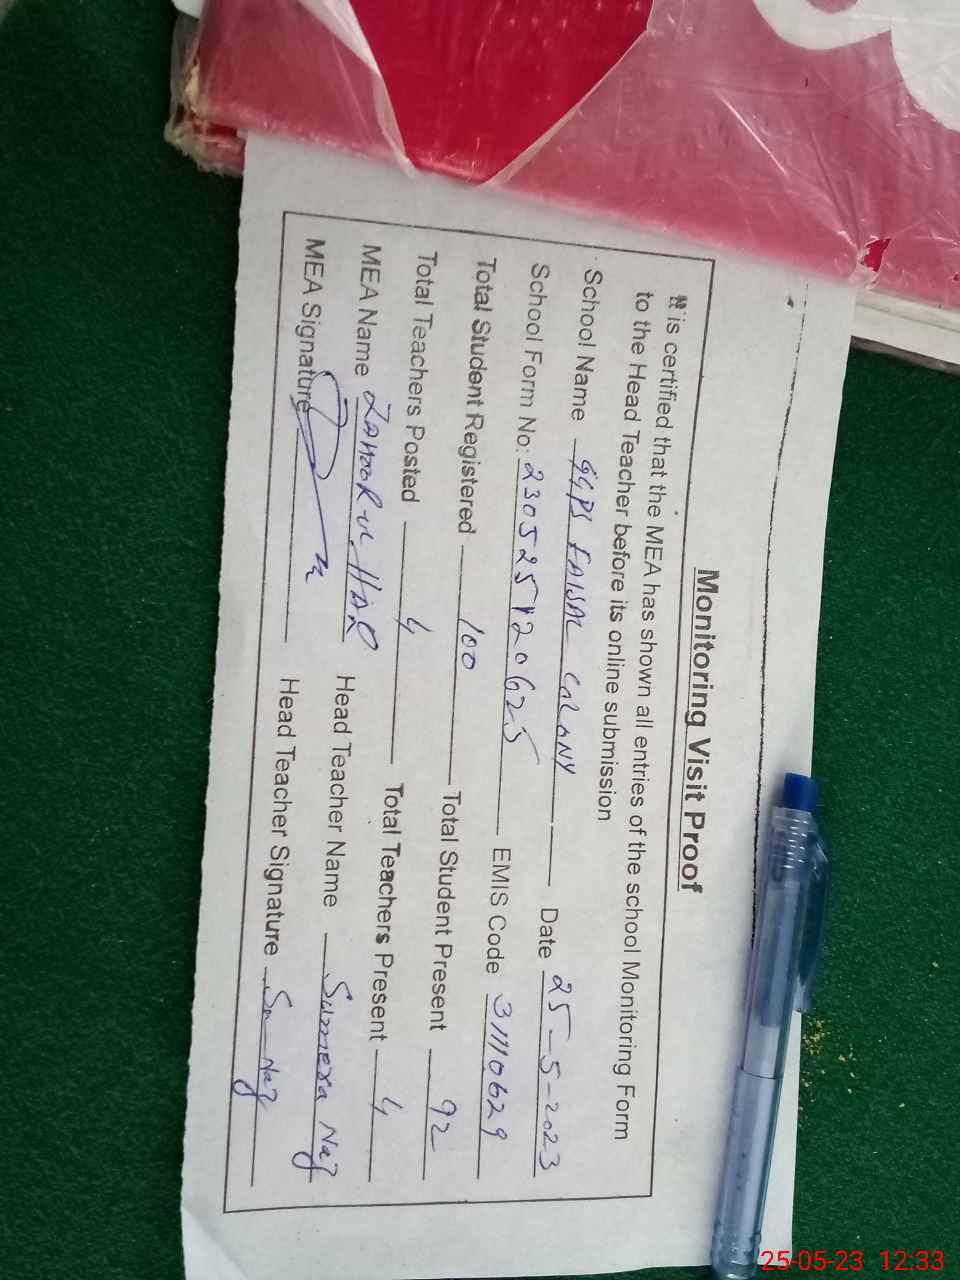 Monitoring Visit Proof
It is certified that the MEA has shown all entries of the school Monitoring Form
to the Head Teacher before its online submission
School Name GGPS FAISAL COLONY Date 25-5-2023
School Form No: EMIS Code 31110629
Total Student Registered 100 Total Student Present 92
Total Teachers Posted 4 Total Teachers Present 4
MEA Name ZAHOOR-UL-HAQ Head Teacher Name Sumera Naz
MEA Signature Head Teacher Signature
25-05-23 12:33